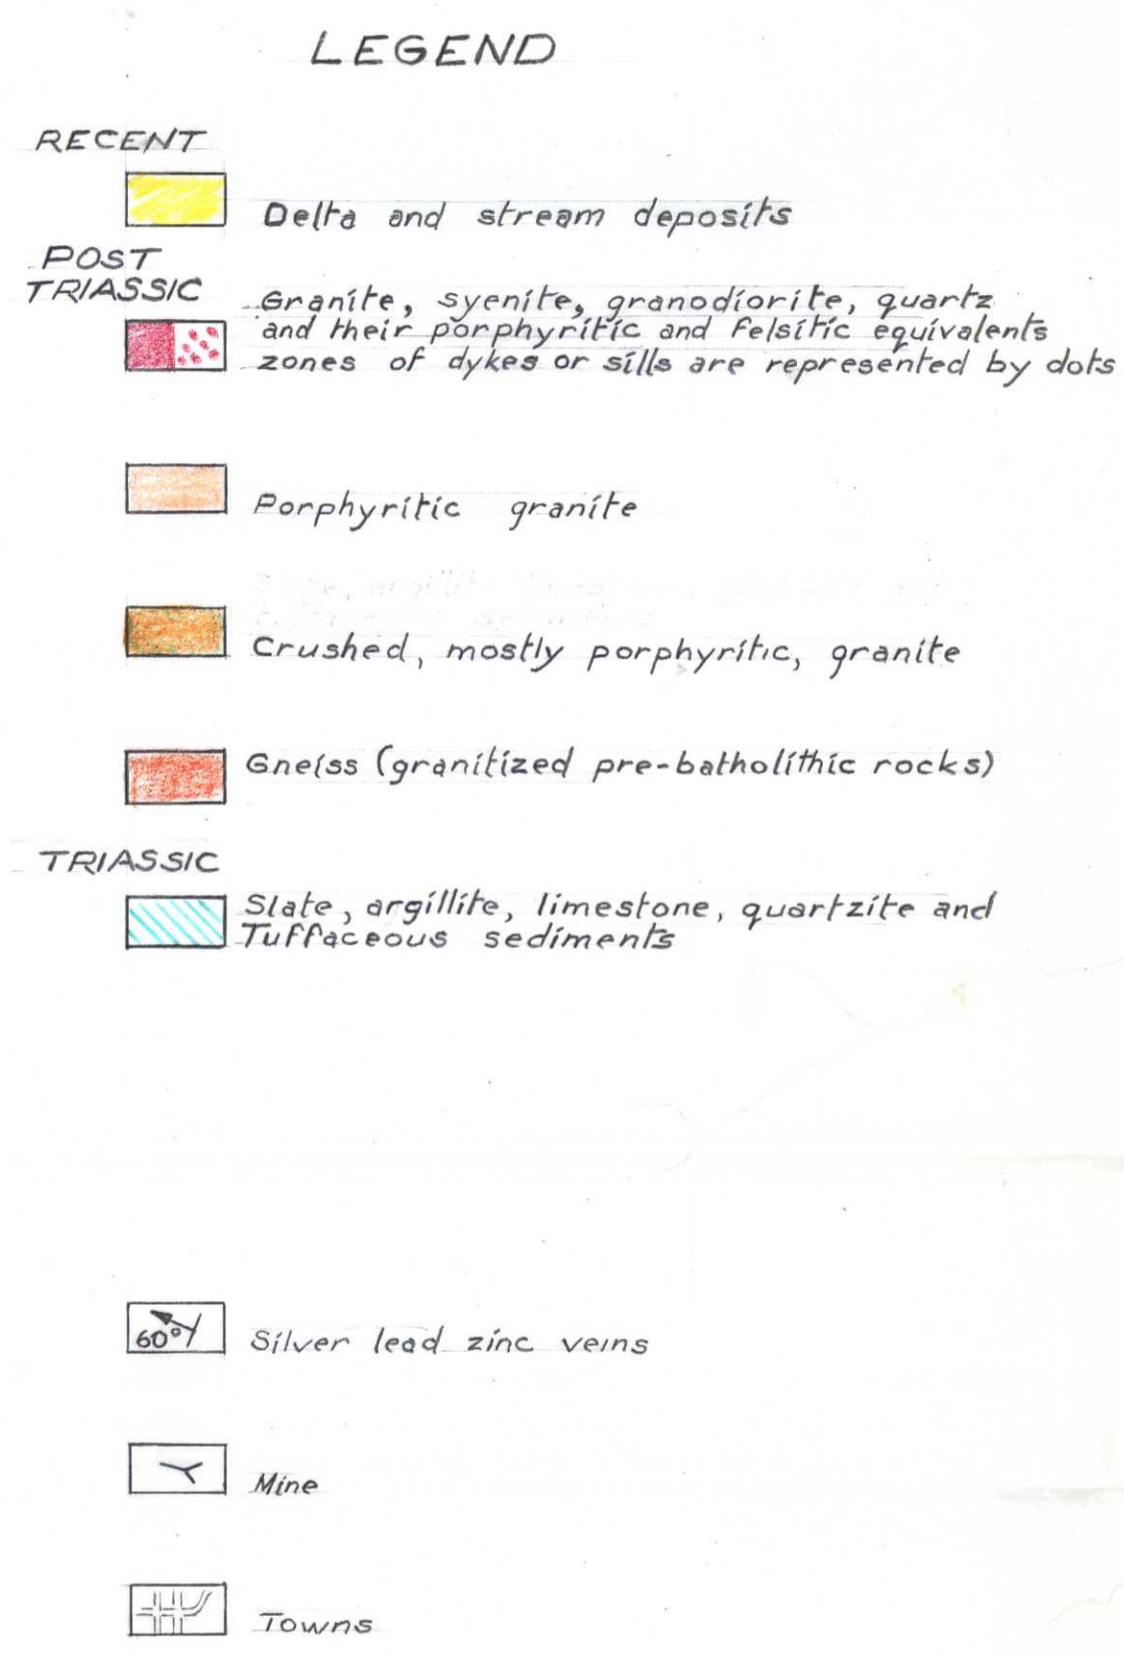 LEGEND
RECENT
Delta and stream deposits
POST
TRIASSIC
Granite, syenite, granodiorite, quartz
and their porphyritic and felsitic equivalents
zones of dykes or sills are represented by dots
Porphyritic granite
Crushed, mostly porphyritic, granite
Gneiss (granitized pre-batholithic rocks)
TRIASSIC
Slate, argillite, limestone, quartzite and
Tuffaceous sediments
60°
Silver lead zinc veins
Mine
Towns